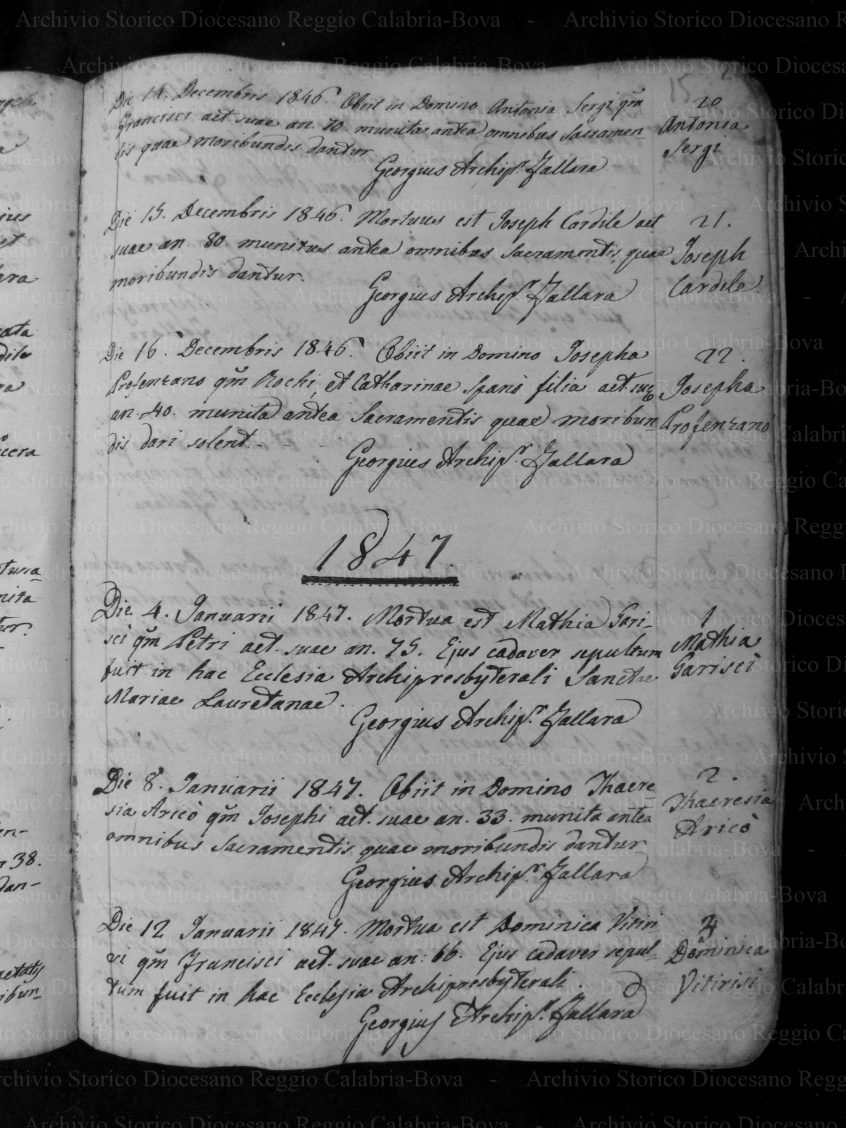 15
Die 14. Decembris 1846. Obiit in Domino Antonia Sergi qm
Francisci aet suae an. 70. munita antea omnibus Sacramen
tis quae moribundis dantur
Georgius Archip.r Zallara
20
Antonia
Sergi
Die 15. Decembris 1846. Mortuus est Joseph Cardile aet
suae an 80 munitus antea omnibus Sacramentis, quae
moribundis dantur.
Georgius Archip.r Zallara
21.
Joseph
Cardile
Die 16. Decembris 1846. Obiit in Domino Josepha
Profenzano qm Rochi, et Catharinae Spanò filia aet. suae
an. 40. munita antea Sacramentis quae moribun
dis dari solent.
Georgius Archip.r Zallara
22.
Josepha
Profenzano
1847.
Die 4. Januarii 1847. Mortua est Mathia Gari-
sci qm Petri aet. suae an. 75. Ejus cadaver sepultum
fuit in hac Ecclesia Archipresbyterali Sanctae
Mariae Lauretanae.
Georgius Archip.r Zallara
1
Mathia
Garisci
Die 8. Januarii 1847. Obiit in Domino Thaere-
sia Aricò qm Josephi aet. suae an. 33. munita antea
omnibus Sacramentis quae moribundis dantur
Georgius Archip.r Zallara
2.
Thaeresia
Aricò
Die 12 Januarii 1847. Mortua est Dominica Vitiri
si qm Francisci aet. suae an: 66. Ejus cadaver sepul-
tum fuit in hac Ecclesia Archipresbyterali.
Georgius Archip.r Zallara
Dominica
Vitirisi
Archivio Storico Diocesano Reggio Calabria-Bova